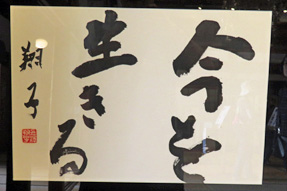 今を
生きる
翔子